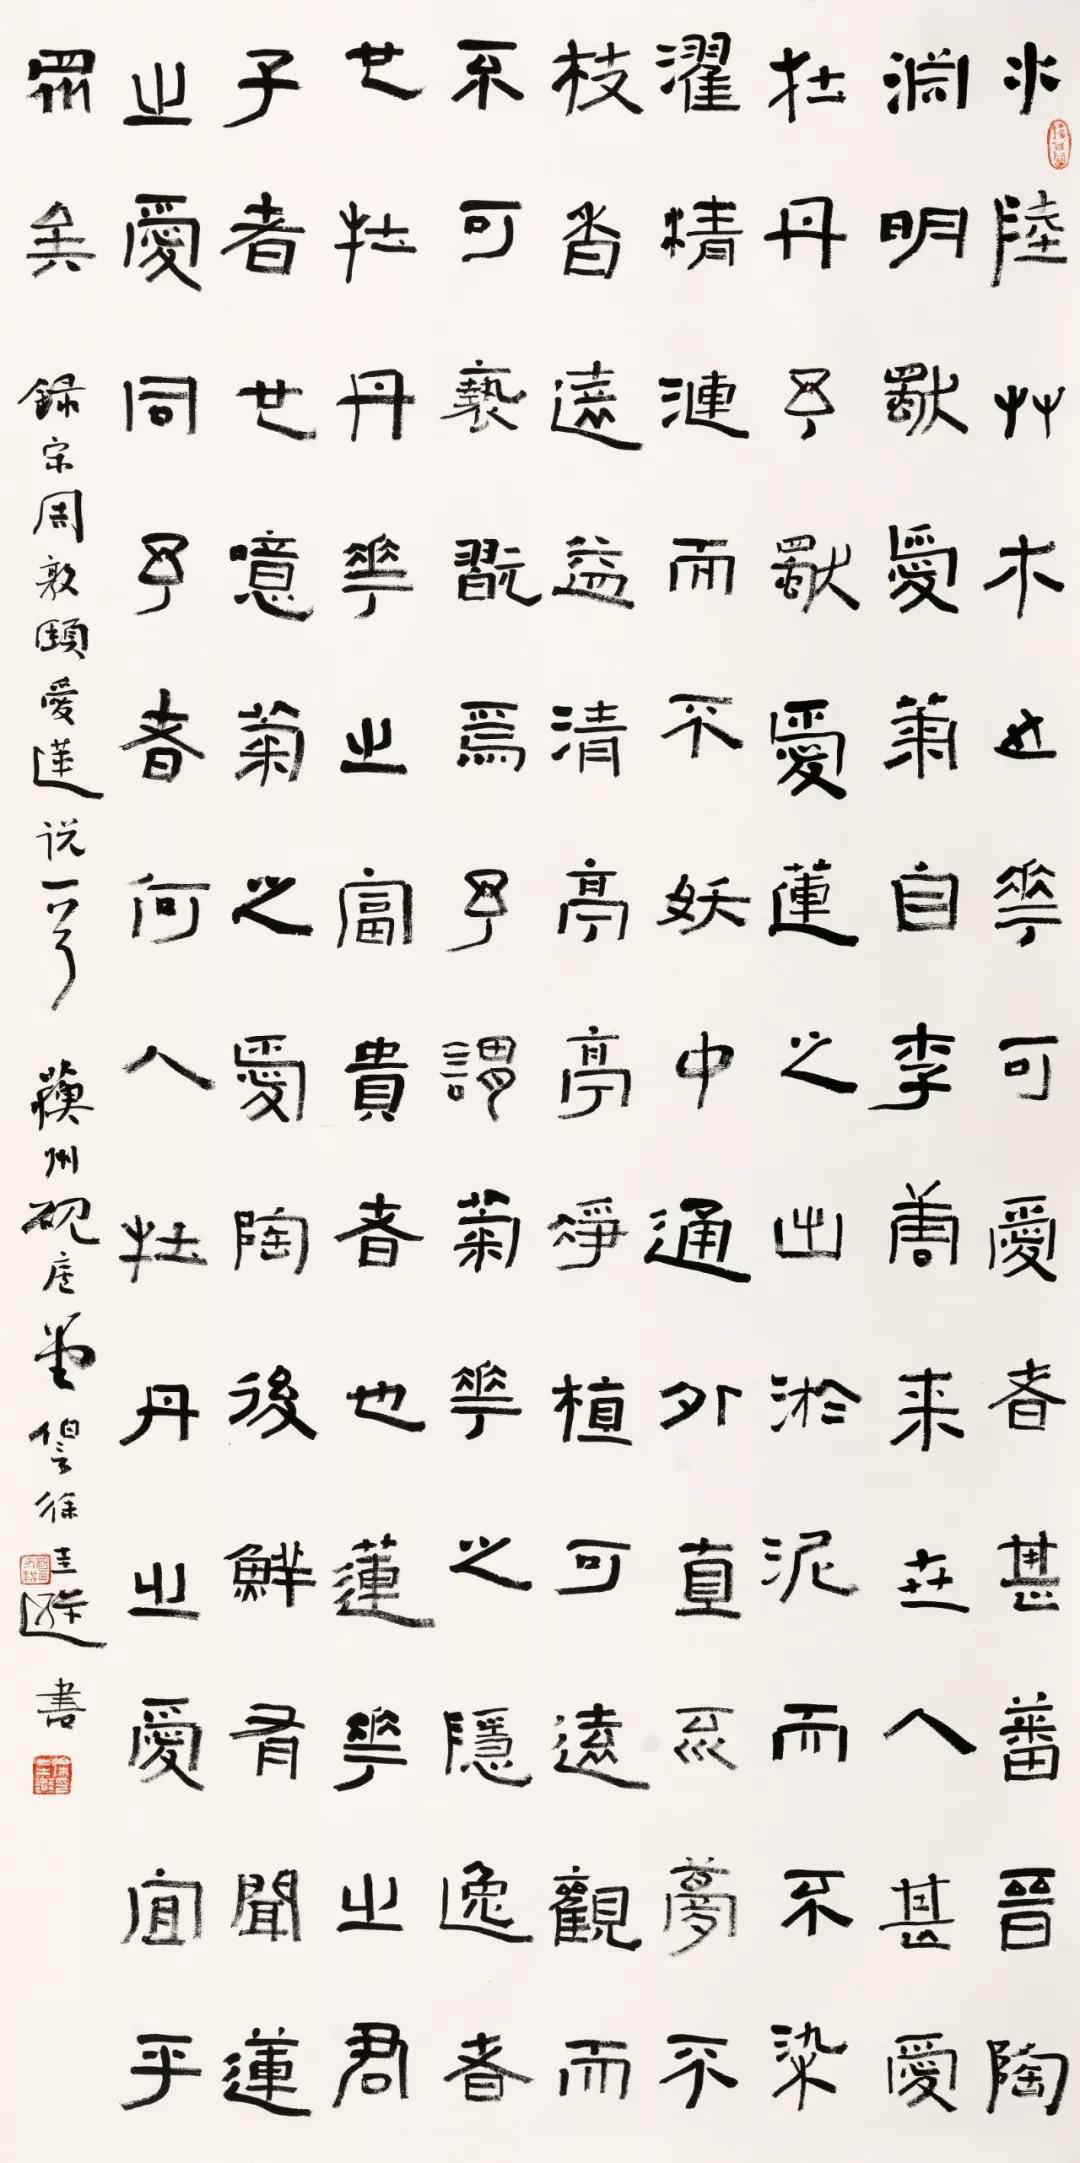 水陸艸木之華可愛者甚蕃晉陶
淵明獨愛菊自李唐來世人甚愛
牡丹予獨愛蓮之出淤泥而不染
濯清漣而不妖中通外直不蔓不
枝香遠益清亭亭淨植可遠觀而
不可褻翫焉予謂菊華之隱逸者
也牡丹華之富貴者也蓮華之君
子者也噫菊之愛陶後鮮有聞蓮
之愛同予者何人牡丹之愛宜乎
眾矣
錄宋周敦頤愛蓮说 蘇州硯 徐圭遜書